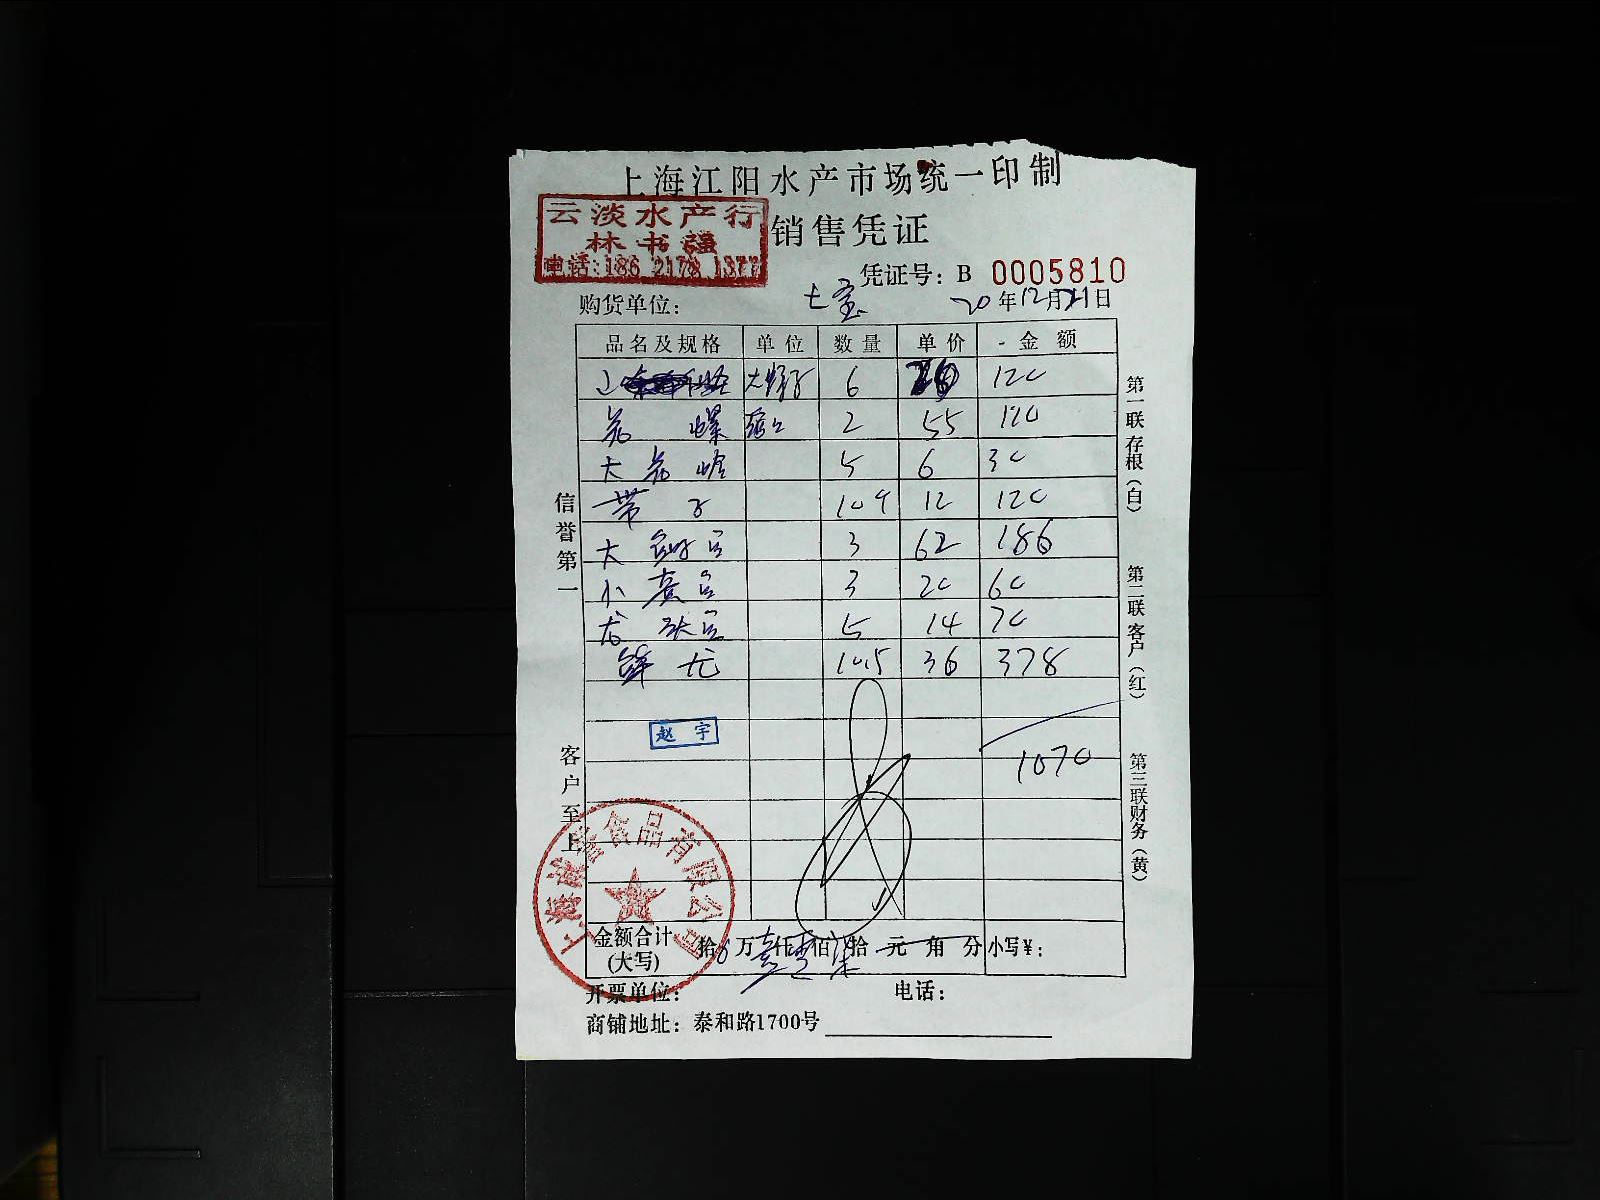 上海江阳水产市场统一印制
云淡水产行
林书强
电话:186 2178 1377
销售凭证
凭证号: B 0005810
购货单位: 七宝 20年12月21日
品名及规格 单位 数量 单价 金额
6 20 120
花螺 2 55 110
大花蛤 5 6 30
带子 10个 12 120
大 3 62 186
小 3 20 60
5 14 70
鲜尤 10.5 36 378
赵宇
1070
信誉第一
客户至上
第一联存根(白)
第二联客户(红)
第三联财务(黄)
上海诚
食品有限公司
金额合计(大写) 拾 万 仟 佰 拾 元 角 分 小写¥:
开票单位: 电话:
商铺地址: 泰和路1700号